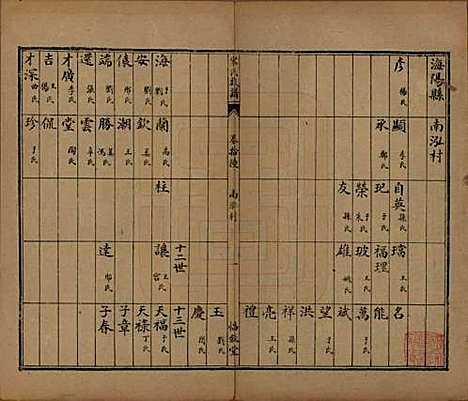 海陽縣
南泓村
彥 楊氏
顯 李氏
承 鄭氏
自英 孫氏
玘 于氏
榮 于氏 朱氏
友 孫氏
璿 王氏
福理 王氏
玻 王氏
雄 姚氏
名
能
萬 于氏
斌
望 于氏
洪
祥 孫氏
亮 王氏
禮
宋氏族譜
卷拾陵
南泓村
一
怡敘堂
海 劉氏
安 劉氏
俵 邢氏
端
還 張氏
才廣 李氏
吉 楊氏
才深
蘭 高氏
欽 姜氏
潮 王氏
勝 姜氏
雲 辛氏
堂 陶氏
侃 王氏
珍 于氏
柱
十二世
讓 王氏
逵 邢氏
十三世
玉 劉氏
慶
天福 于氏
天祿 丁氏
子章
子春